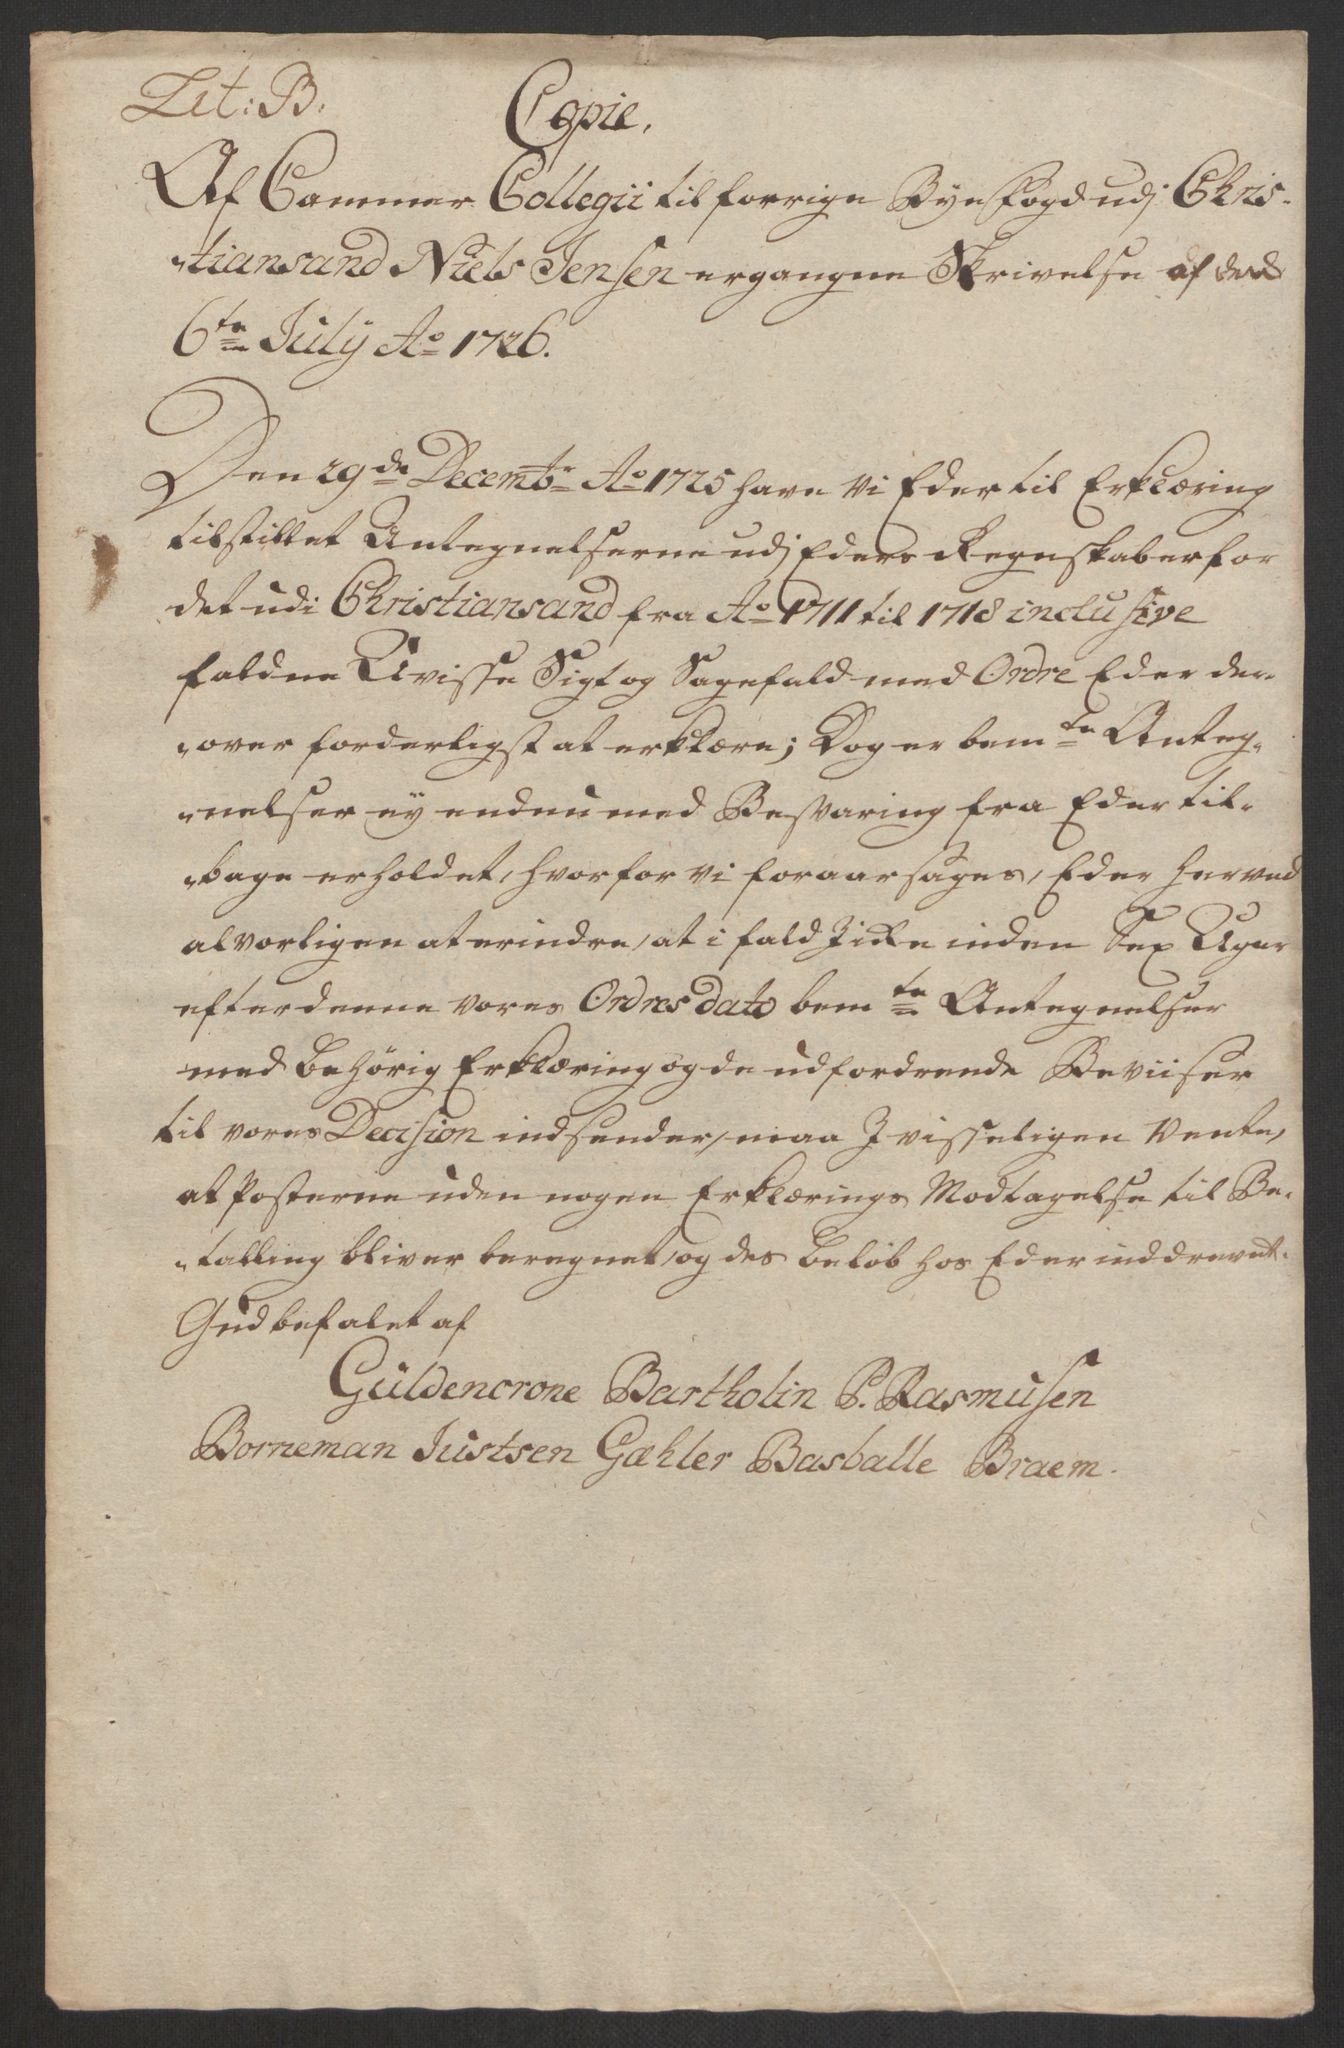 Lit: B.
Copie.
Af Cammer Collegii til forrige Bye Fogd udj Chris-
tiansand Niels Jensen ergangne Skrivelse af den
6te July Ao 1726.
Den 29de Decembr Ao 1725 have Vi Eder til Erklæring
tilstillet Antegnelserne udj Eders Regnskaber for
det udi Christiansand fra Ao 1711 til 1718 inclusive
faldne Uvisse Sigt og Sagefald med Ordre Eder der-
over forderligst at erklære; Dog er bemte Anteg-
nelser ey endnu med Besvaring fra Eder til-
bage erholdet, hvorfor vi foraarsages, Eder herved
alvorligen at erindre, at i fald J icke inden Sex Uger
efter denne vores Ordres dato bemte Antegnelser
med behörig Erklæring og de udfordrende Beviiser
til vores Decision indsender, maa J visseligen vente,
at Posterne uden nogen Erklærings Modtagelse til Be-
talling bliver beregnet, og des beløb hos Eder inddrevet.
Gud befalet af
Güldencrone Bartholin P. Rasmusen
Borneman Justsen Gæhler Basballe Braem.